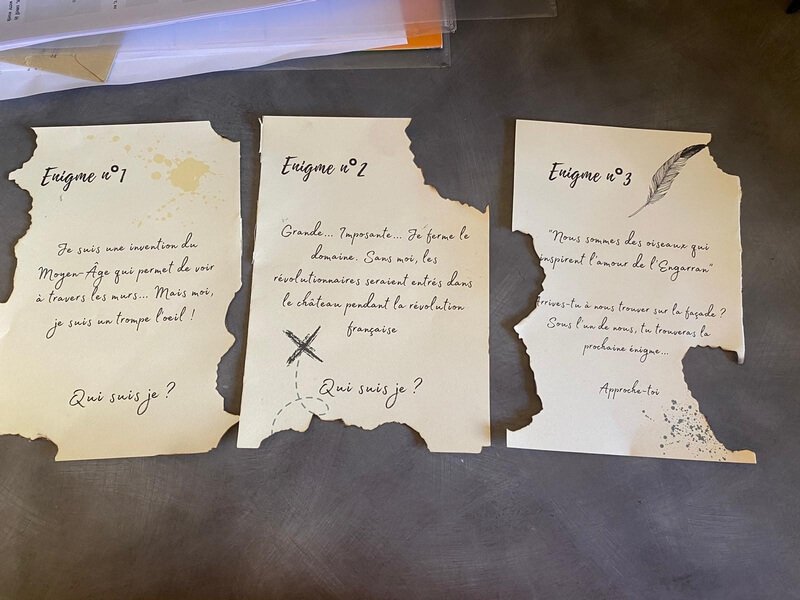 Enigme n°1
Je suis une invention du
Moyen-Âge qui permet de voir
à travers les murs... Mais moi,
je suis un trompe l'oeil !
Qui suis je ?
Enigme n°2
Grande... Imposante... Je ferme le
domaine. Sans moi, les
révolutionnaires seraient entrés dans
le château pendant la révolution
française
Qui suis je ?
Enigme n°3
"Nous sommes des oiseaux qui
inspirent l'amour de l'Engarran"
Arrives-tu à nous trouver sur la façade ?
Sous l'un de nous, tu trouveras la
prochaine énigme...
Approche-toi